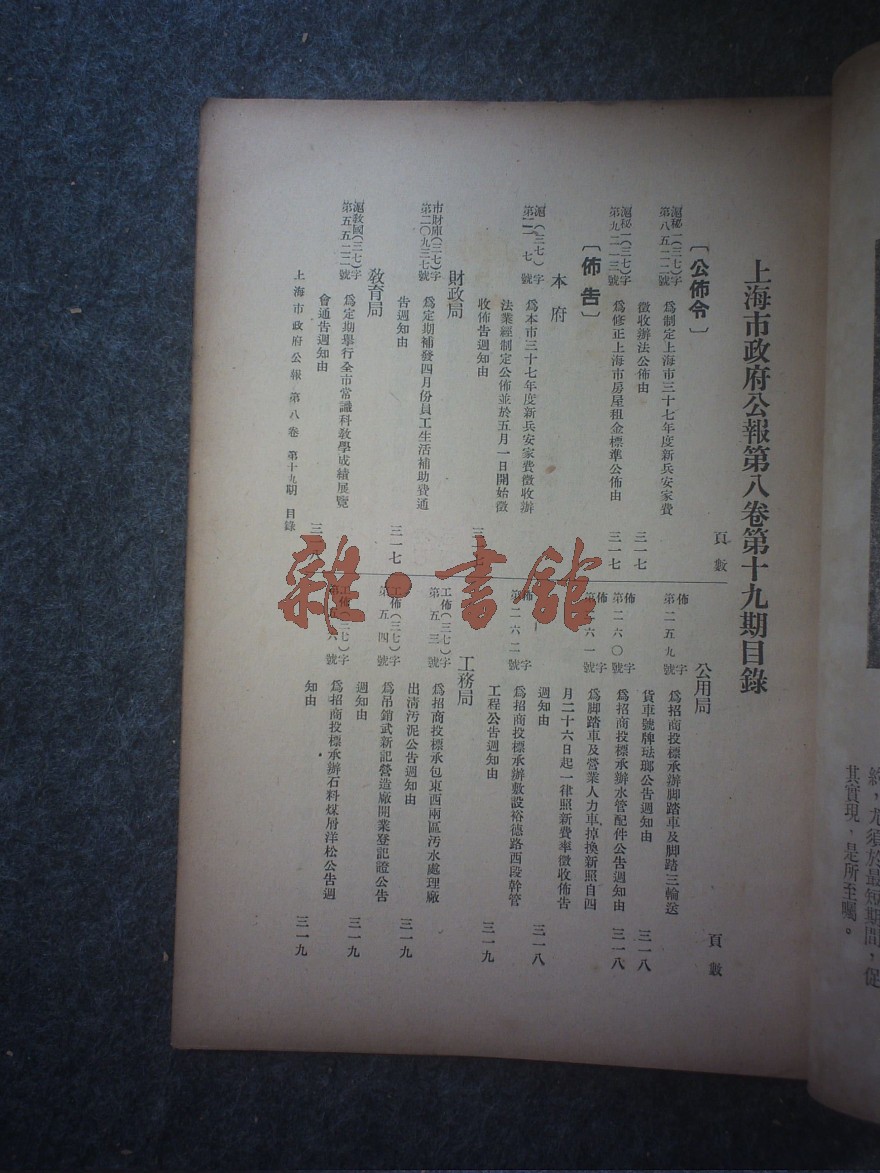 上海市政府公報第八卷第十九期目錄
頁數
〔公佈令〕
滬秘一(三七)字
第八五二二號
爲制定上海市三十七年度新兵安家費
徵收辦法公佈由
三一七
滬秘一(三七)字
第九二一三號
爲修正上海市房屋租金標準公佈由
三一七
〔佈告〕
本府
滬(三七)字
爲本市三十七年度新兵安家費徵收辦
法業經制定公佈並於五月一日開始徵
收佈告週知由
財政局
市財庫(三七)字
第二〇九三七號
爲定期補發四月份員工生活補助費通
告週知由
三一七
教育局
滬敎國(三七)字
第五五二二號
爲定期舉行全市常識科敎學成績展覽
會通告週知由
頁數
公用局
佈字
第二五九號
爲招商投標承辦脚踏車及脚踏三輪送
貨車號牌琺瑯公告週知由
三一八
佈字
第二六〇號
爲招商投標承辦水管配件公告週知由
三一八
佈字
第二六一號
爲脚踏車及營業人力車掉換新照自四
月二十六日起一律照新費率徵收佈告
週知由
三一八
佈字
第二六二號
爲招商投標承辦敷設裕德路西段幹管
工程公告週知由
三一九
工務局
工佈(三七)字
第五三號
爲招商投標承包東西兩區汚水處理廠
出淸汚泥公告週知由
三一九
工佈(三七)字
第五四號
爲吊銷武新記營造廠開業登記證公告
週知由
三一九
工佈(三七)字
爲招商投標承辦石料煤屑洋松公告週
知由
三一九
上海市政府公報 第八卷 第十九期 目錄
雜·書館
其實現,是所至囑。